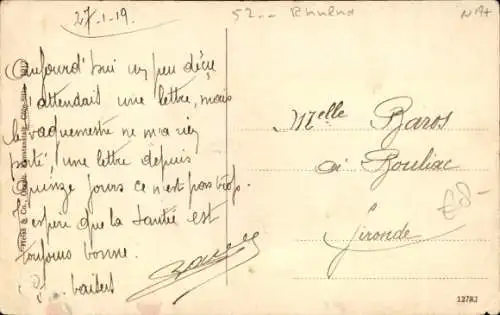 27-1-19.
52 --
Aujourd'hui un peu déçu
j'attendais une lettre, mais
le vaguemestre ne m'a rien
porté, une lettre depuis
Quinze jours ce n'est pas trop.
J'espère que la santé est
toujours bonne.
baisers
Melle Baros
à Bouliac
Gironde
£8-
1278J